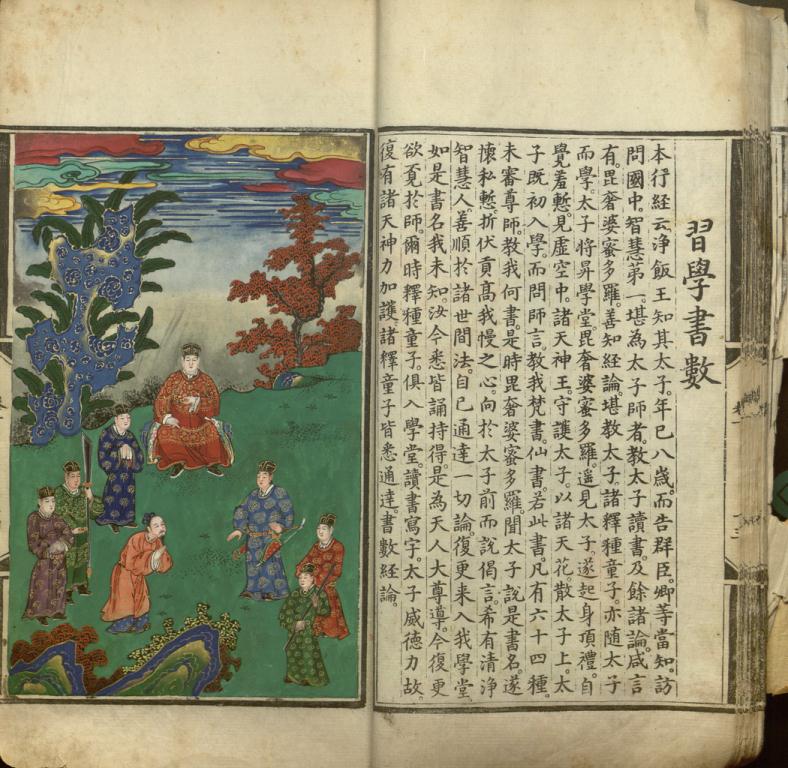 習學書數
本行經云淨飯王知其太子年已八歲而告群臣卿等當知訪
問國中智慧第一堪為太子師者教太子讀書及餘諸論咸言
有毘奢婆蜜多羅善知經論堪教太子諸釋種童子亦随太子
而學太子將昇學堂毘奢婆蜜多羅遥見太子遂起身頂禮自
覺羞慙見虛空中諸天神王守護太子以諸天花散太子上太
子既初入學而問師言教我梵書仙書若此書凡有六十四種
未審尊師教我何書是時毘奢婆蜜多羅聞太子說是書名遂
懷私慙折伏貢高我慢之心向於太子前而說偈言希有清淨
智慧人善順於諸世間法自已通達一切論復更来入我學堂
如是書名我未知汝今悉皆誦持得是為天人大尊導今復更
欲覔於師爾時釋種童子俱入學堂讀書寫字太子威德力故
復有諸天神力加護諸釋童子皆悉通達書數經論